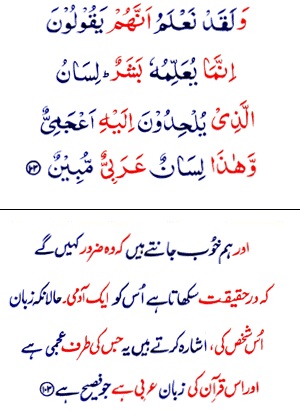 وَلَقَدْ نَعْلَمُ اَنَّهُمْ يَقُوْلُوْنَ
اِنَّمَا يُعَلِّمُهٗ بَشَرٌ ؕ لِسَانُ
الَّذِىْ يُلْحِدُوْنَ اِلَيْهِ اَعْجَمِىٌّ
وَّهٰذَا لِسَانٌ عَرَبِىٌّ مُّبِيْنٌ ﴿۱۰۳﴾
اور ہم خوب جانتے ہیں کہ وہ ضرور کہیں گے
کہ درحقیقت سکھاتا ہے اُس کو ایک آدمی۔ حالانکہ زبان
اُس شخص کی، اشارہ کرتے ہیں یہ جس کی طرف عجمی ہے
اور اس قرآن کی زبان عربی ہے جو فصیح ہے ﴿۱۰۳﴾